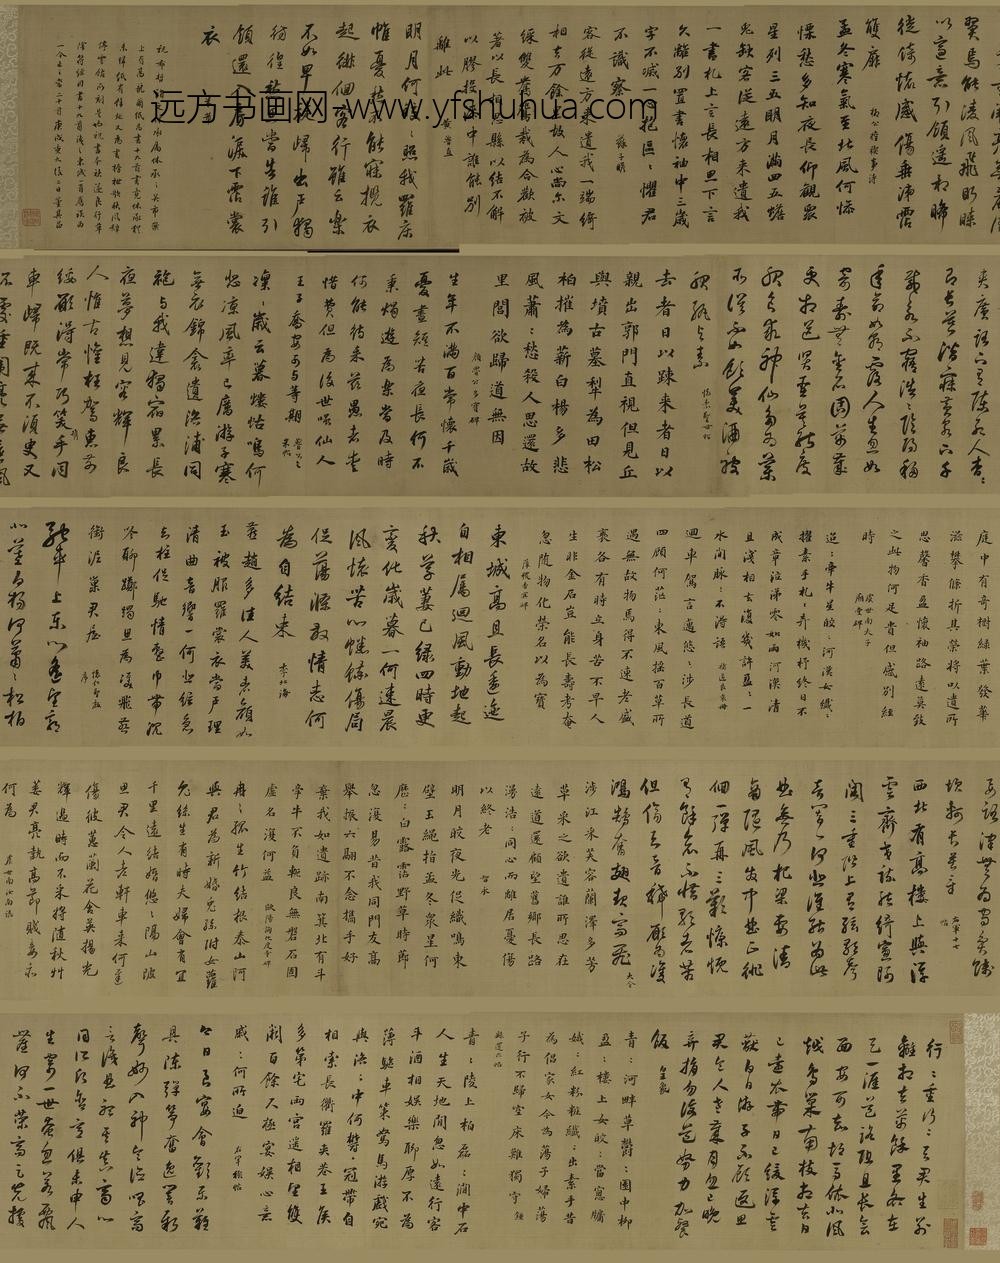 远方书画网--www.yfshuhua.com
行々重行々與君生別
離相去萬餘里各在
天一涯道路阻且長會
面安可知胡馬依北風
越鳥巢南枝相去日
已遠衣帶日已緩浮雲
蔽白日游子不顧返思
君令人老歲月忽已晚
棄捐勿復道努力加餐
飯
青々河畔草鬱々園中柳
盈々樓上女皎々當窗牖
娥々紅粉粧纖々出素手昔
為倡家女今為蕩子婦蕩
子行不歸空床難獨守
青々陵上柏磊々澗中石
人生天地間忽如遠行客
斗酒相娛樂聊厚不為
薄驅車策駑馬游戲宛
與洛々中何鬱々冠帶自
相索長衢羅夾巷王侯
多第宅兩宮遙相望雙
闕百餘尺極宴娛心意
戚々何所迫
今日良宴會歡樂難
具陳彈箏奮逸響新
聲妙入神令德唱高
言識曲聽其真齊心
同所願含意俱未申人
生寄一世奄忽若飆
塵何不策高足先據
要路津無為守貧賤
坎軻長苦辛
西北有高樓上與浮
雲齊交疏結綺窗阿
閣三重階上有絃歌聲
音響一何悲誰能為此
曲無乃杞梁妻清
商隨風發中曲正徘
徊一彈再三歎慷慨
有餘哀不惜歌者苦
但傷知音稀願為雙
鴻鵠奮翅起高飛
涉江采芙蓉蘭澤多芳
草采之欲遺誰所思在
遠道還顧望舊鄉長路
漫浩々同心而離居憂傷
以終老 智永
明月皎夜光促織鳴東
壁玉繩指孟冬衆星何
歷々白露霑野草時節
忽復易昔我同門友高
舉振六翮不念攜手好
棄我如遺跡南箕北有斗
牽牛不負軛良無磐石固
虛名復何益
冉々孤生竹結根泰山阿
與君為新婚兔絲附女蘿
兔絲生有時夫婦會有宜
千里遠結婚悠々隔山陂
思君令人老軒車來何遲
傷彼蕙蘭花含英揚光
輝過時而不采將隨秋草
萎君亮執高節賤妾亦
何為
庭中有奇樹綠葉發華
滋攀條折其榮將以遺所
思馨香盈懷袖路遠莫致
之此物何足貴但感別經
時
迢々牽牛星皎々河漢女纖々
擢素手札々弄機杼終日不
成章泣涕零如雨河漢清
且淺相去復幾許盈々一
水間脈々不得語
迴車駕言邁悠々涉長道
四顧何茫々東風搖百草所
遇無故物焉得不速老盛
衰各有時立身苦不早人
生非金石豈能長壽考奄
忽隨物化榮名以為寶
東城高且長逶迤
自相屬迴風動地起
秋草萋已綠四時更
變化歲暮一何速晨
風懷苦心蟋蟀傷局
促蕩滌放情志何
為自結束 李北海
燕趙多佳人美者顏如
玉被服羅裳衣當戶理
清曲音響一何悲絃急
知柱促馳情整巾帶沉
吟聊躑躅思為雙飛燕
銜泥巢君屋
驅車上東門遙望郭
北墓白楊何蕭々松柏
夾廣路下有陳死人杳々
即長暮潛寐黃泉下千
載永不寤浩々陰陽移
年命如朝露人生忽如
寄壽無金石固萬歲
更相送聖賢莫能度
服食求神仙多為藥
所誤不如飲美酒被
服紈與素
去者日以疎來者日以
親出郭門直視但見丘
與墳古墓犁為田松
柏摧為薪白楊多悲
風蕭々愁殺人思還故
里閭欲歸道無因
生年不滿百常懷千歲
憂晝短苦夜長何不
秉燭遊為樂當及時
何能待來茲愚者愛
惜費但為後世嗤仙人
王子喬難可與等期
凜々歲云暮螻蛄鳴何
悲涼風率已厲游子寒
無衣錦衾遺洛浦同
袍與我違獨宿累長
夜夢想見容輝良
人惟古懽枉駕惠前
綏願得常巧笑攜手同
車歸既來不須臾又
不處重闈亮無晨風
翼焉能凌風飛眄睞
以適意引領遙相睎
徙倚懷感傷垂涕霑
雙扉
孟冬寒氣至北風何慘
慄愁多知夜長仰觀衆
星列三五明月滿四五蟾
兔缺客從遠方來遺我
一書札上言長相思下言
久離別置書懷袖中三歲
字不滅一心抱區々懼君
不識察 蘇子瞻
客從遠方來遺我一端綺
相去萬餘里故人心尚爾文
綵雙鴛鴦裁為合歡被
著以長相思緣以結不解
以膠投漆中誰能別
離此 黃魯直
明月何皎々照我羅床
幃憂愁不能寐攬衣
起徘徊客行雖云樂
不如早旋歸出戶獨
彷徨愁思當告誰引
領還入房淚下霑裳
衣